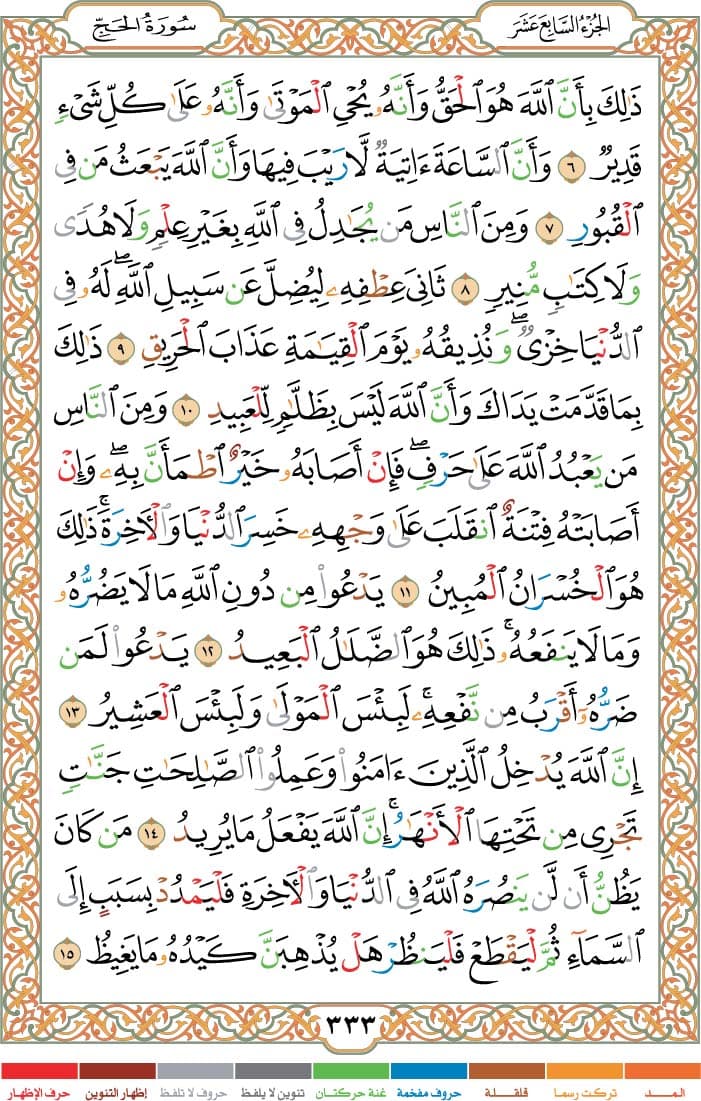 الجزء السابع عشر
سورة الحج
ذَٰلِكَ بِأَنَّ ٱللَّهَ هُوَ ٱلْحَقُّ وَأَنَّهُۥ يُحْىِ ٱلْمَوْتَىٰ وَأَنَّهُۥ عَلَىٰ كُلِّ شَىْءٍ
قَدِيرٌ ٦ وَأَنَّ ٱلسَّاعَةَ ءَاتِيَةٌ لَّا رَيْبَ فِيهَا وَأَنَّ ٱللَّهَ يَبْعَثُ مَن فِى
ٱلْقُبُورِ ٧ وَمِنَ ٱلنَّاسِ مَن يُجَٰدِلُ فِى ٱللَّهِ بِغَيْرِ عِلْمٍ وَلَا هُدًى
وَلَا كِتَٰبٍ مُّنِيرٍ ٨ ثَانِىَ عِطْفِهِۦ لِيُضِلَّ عَن سَبِيلِ ٱللَّهِ ۖ لَهُۥ فِى
ٱلدُّنْيَا خِزْىٌ ۖ وَنُذِيقُهُۥ يَوْمَ ٱلْقِيَٰمَةِ عَذَابَ ٱلْحَرِيقِ ٩ ذَٰلِكَ
بِمَا قَدَّمَتْ يَدَاكَ وَأَنَّ ٱللَّهَ لَيْسَ بِظَلَّٰمٍ لِّلْعَبِيدِ ١٠ وَمِنَ ٱلنَّاسِ
مَن يَعْبُدُ ٱللَّهَ عَلَىٰ حَرْفٍ ۖ فَإِنْ أَصَابَهُۥ خَيْرٌ ٱطْمَأَنَّ بِهِۦ ۖ وَإِنْ
أَصَابَتْهُ فِتْنَةٌ ٱنقَلَبَ عَلَىٰ وَجْهِهِۦ خَسِرَ ٱلدُّنْيَا وَٱلْءَاخِرَةَ ۚ ذَٰلِكَ
هُوَ ٱلْخُسْرَانُ ٱلْمُبِينُ ١١ يَدْعُوا۟ مِن دُونِ ٱللَّهِ مَا لَا يَضُرُّهُۥ
وَمَا لَا يَنفَعُهُۥ ۚ ذَٰلِكَ هُوَ ٱلضَّلَٰلُ ٱلْبَعِيدُ ١٢ يَدْعُوا۟ لَمَن
ضَرُّهُۥٓ أَقْرَبُ مِن نَّفْعِهِۦ ۚ لَبِئْسَ ٱلْمَوْلَىٰ وَلَبِئْسَ ٱلْعَشِيرُ ١٣
إِنَّ ٱللَّهَ يُدْخِلُ ٱلَّذِينَ ءَامَنُوا۟ وَعَمِلُوا۟ ٱلصَّٰلِحَٰتِ جَنَّٰتٍ
تَجْرِى مِن تَحْتِهَا ٱلْأَنْهَٰرُ ۚ إِنَّ ٱللَّهَ يَفْعَلُ مَا يُرِيدُ ١٤ مَن كَانَ
يَظُنُّ أَن لَّن يَنصُرَهُ ٱللَّهُ فِى ٱلدُّنْيَا وَٱلْءَاخِرَةِ فَلْيَمْدُدْ بِسَبَبٍ إِلَى
ٱلسَّمَآءِ ثُمَّ لْيَقْطَعْ فَلْيَنظُرْ هَلْ يُذْهِبَنَّ كَيْدُهُۥ مَا يَغِيظُ ١٥
٣٣٣
المــد تركت رسما قلقلة حروف مفخمة غنة حركتان تنوين لا يلفظ حروف لا تلفظ إظهار التنوين حرف الإظهار